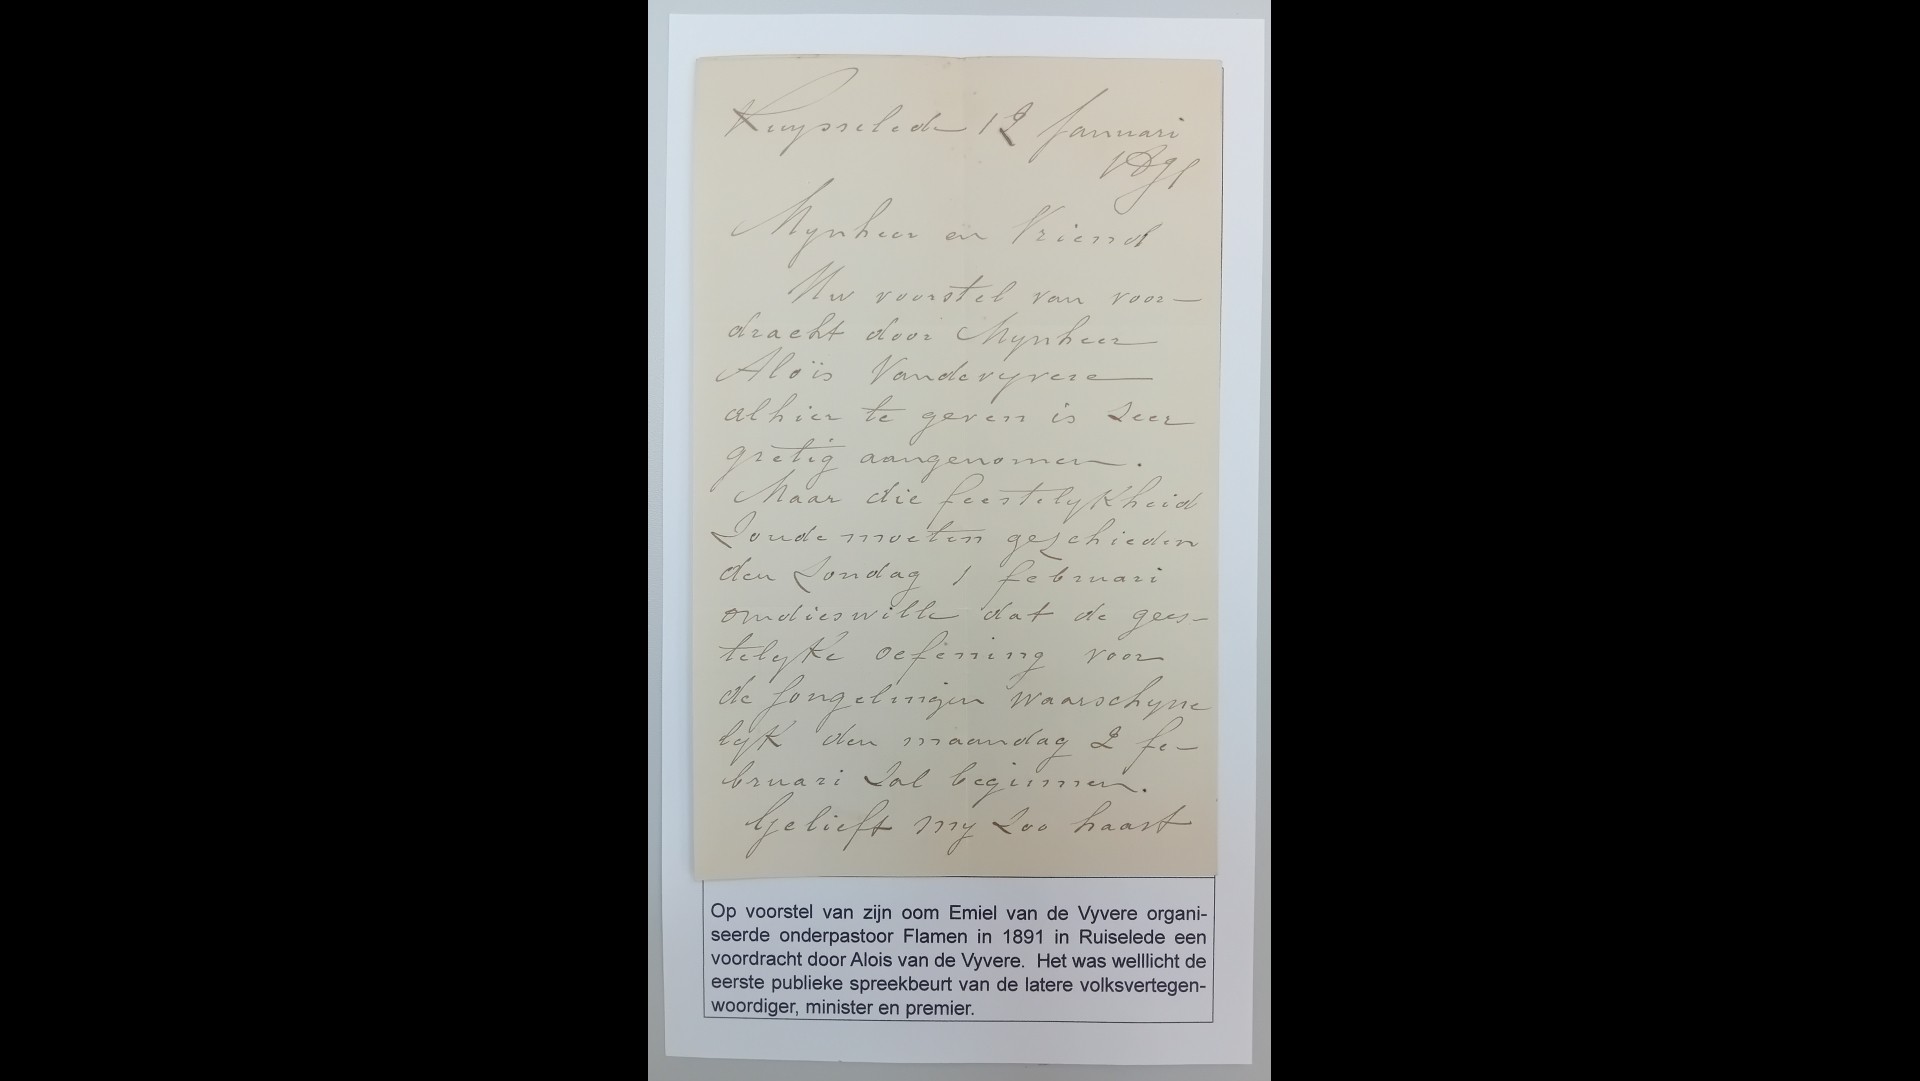 Ruysselede 12 Januari
1891
Mynheer en Vriend
Uw voorstel van voor-
dracht door Mynheer
Aloïs Vandevyvere
alhier te geven is zeer
gretig aangenomen.
Maar die feestelykheid
zoude moeten geschieden
den zondag 1 februari
omdieswille dat de gees-
telyke oefening voor
de Jongelingen waarschyne
lyk den maandag 2 fe-
bruari zal beginnen.
Gelieft my zoo haast
Op voorstel van zijn oom Emiel van de Vyvere organi-
seerde onderpastoor Flamen in 1891 in Ruiselede een
voordracht door Alois van de Vyvere. Het was welllicht de
eerste publieke spreekbeurt van de latere volksvertegen-
woordiger, minister en premier.